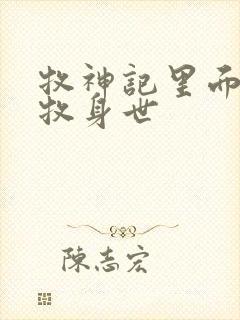 牧神記里而
牧身世
陳志宏